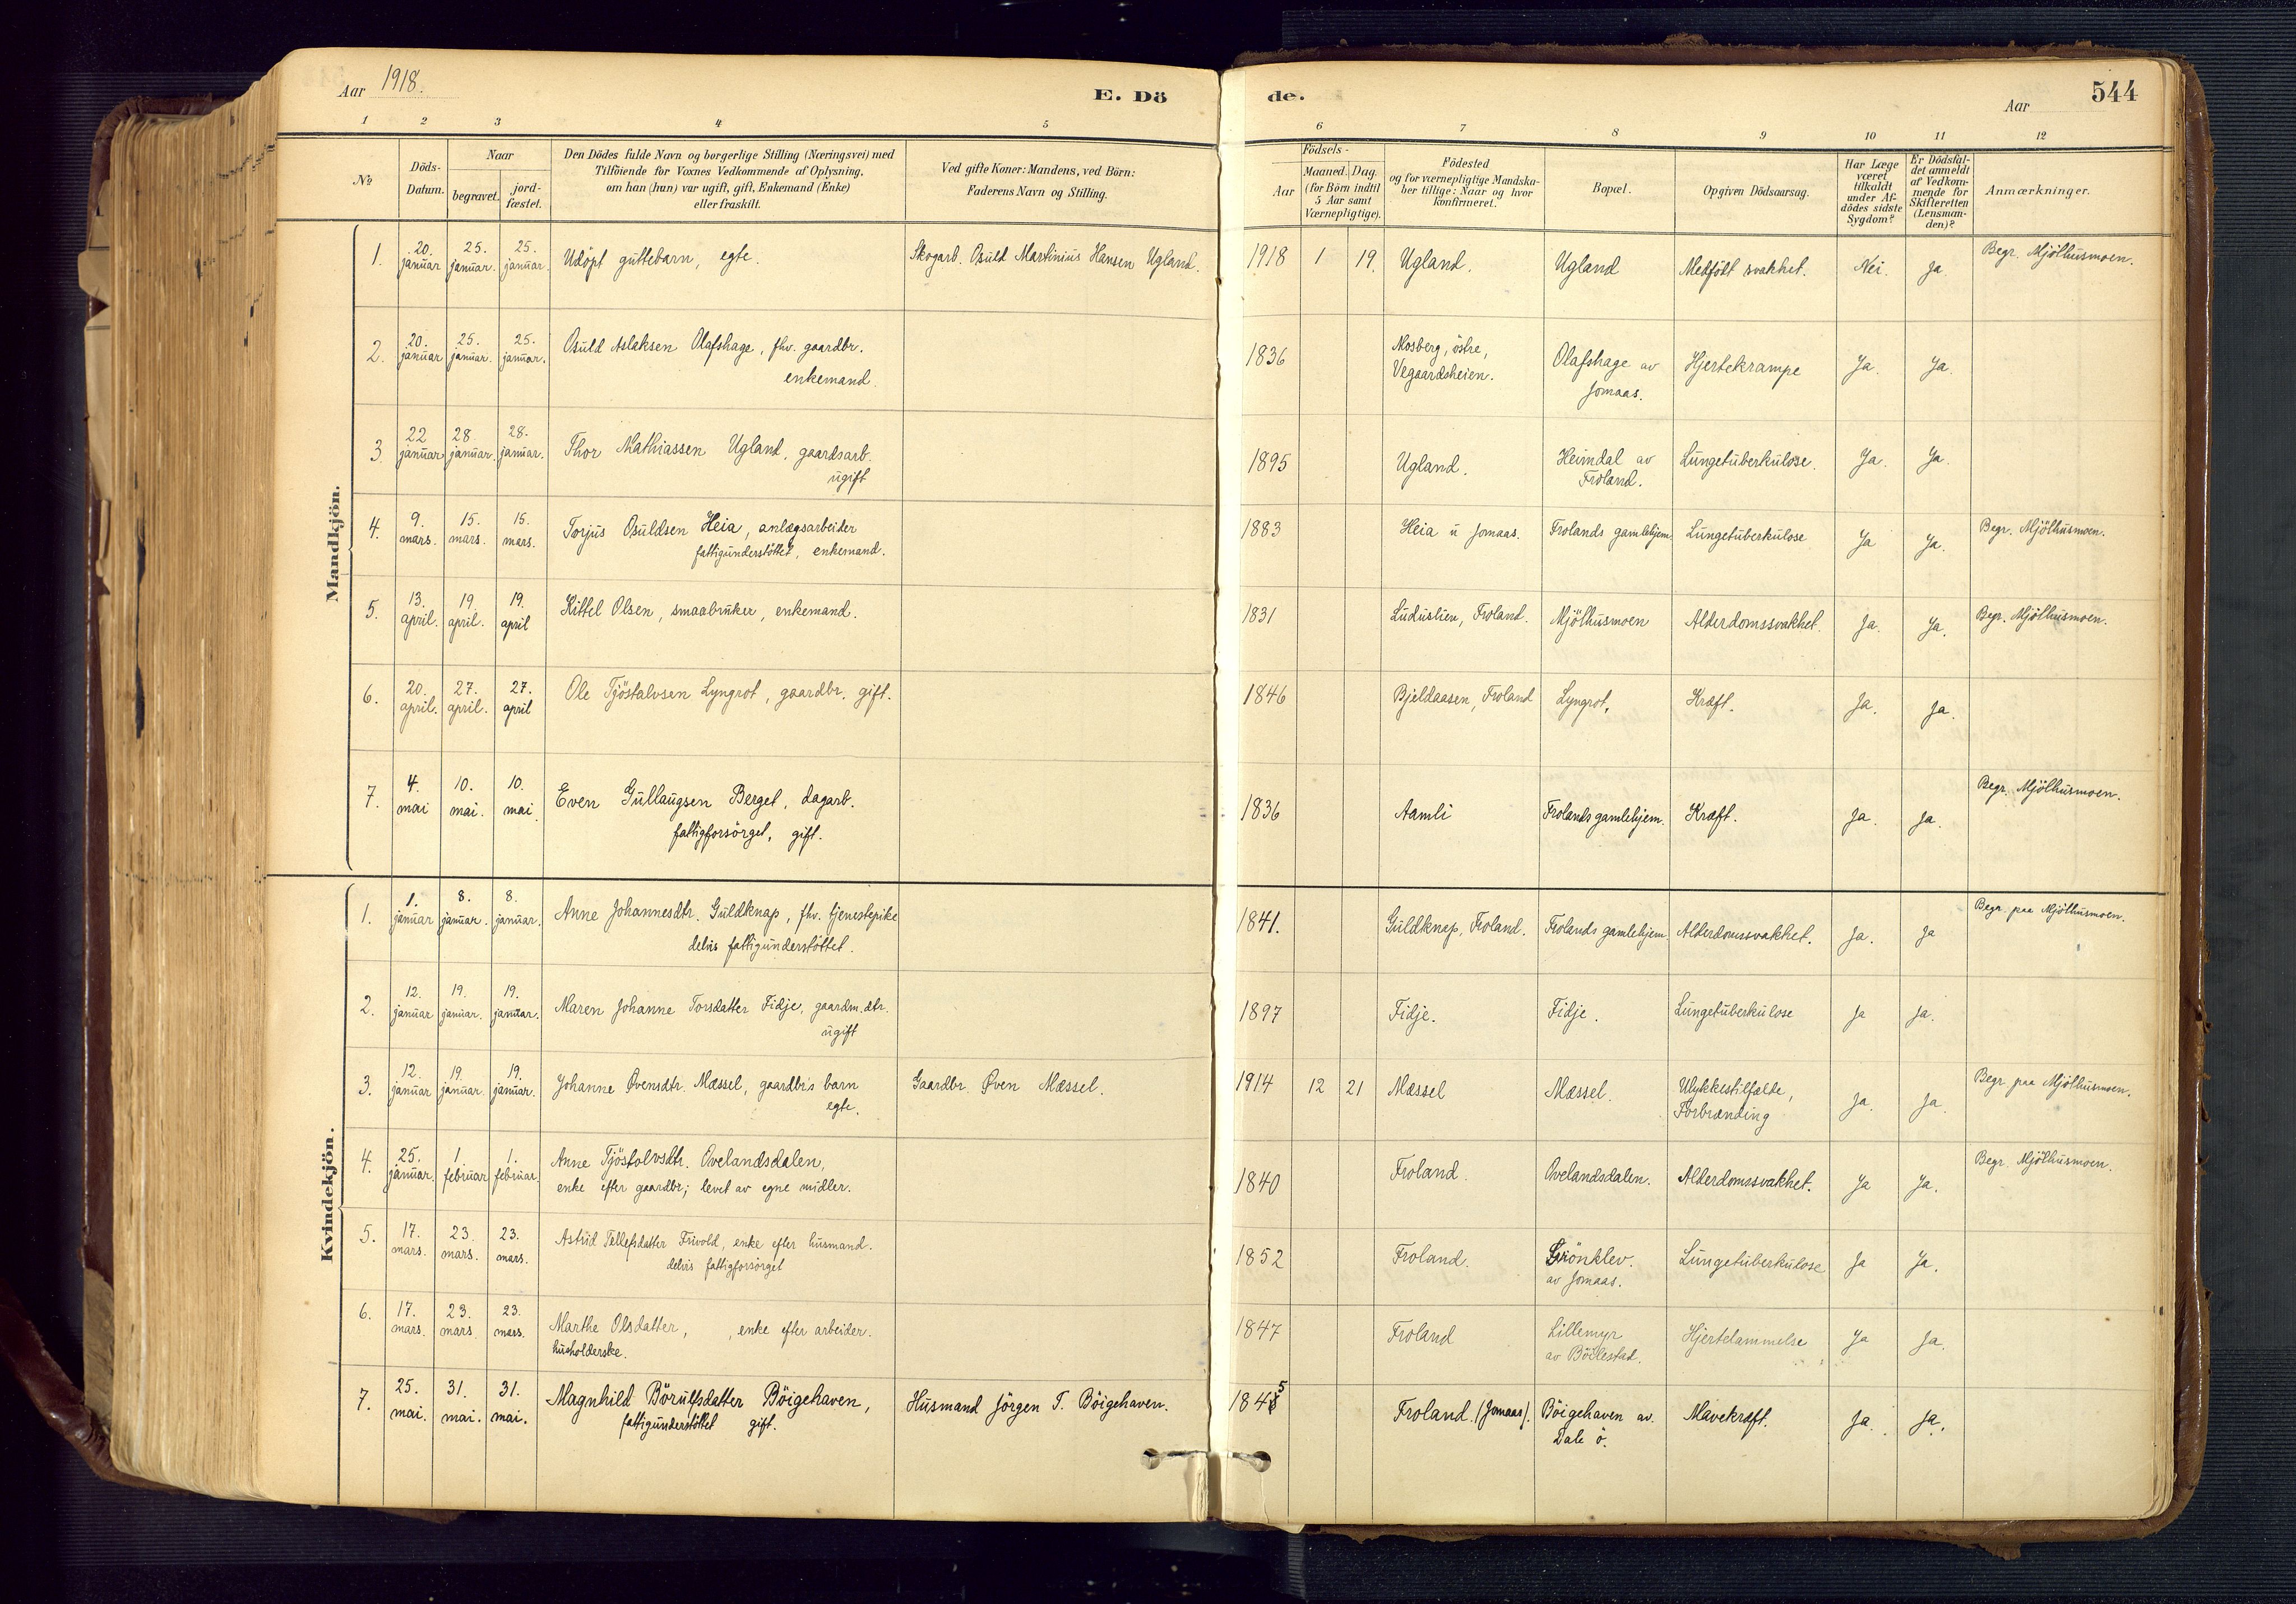 Aar 1918.
E. Dö
de.
Aar
544
1 2 3 4 5 6 7 8 9 10 11 12
No
Döds-
Datum.
Naar
begravet.
jord-
fæstet.
Den Dödes fulde Navn og borgerlige Stilling (Næringsvei) med
Tilföiende for Voxnes Vedkommende af Oplysning,
om han (hun) var ugift, gift, Enkemand (Enke)
eller fraskilt.
Ved gifte Koner: Mandens, ved Börn:
Faderens Navn og Stilling.
Födsels-
Aar
Maaned. Dag.
(for Börn indtil
5 Aar samt
Værnepligtige).
Födested
og for værnepligtige Mandska-
ber tillige: Naar og hvor
konfirmeret.
Bopæl.
Opgiven Dödsaarsag.
Har Læge
været
tilkaldt
under Af-
dödes sidste
Sygdom?
Er Dödsfal-
det anmeldt
af Vedkom-
mende for
Skifteretten
(Lensman-
den)?
Anmærkninger.
Mandkjön.
1. 20. januar 25. januar. 25. januar. Udöpt guttebarn, egte. Skogarb. Osuld Martinius Hansen Ugland. 1918 1 19. Ugland. Ugland Medfödt svakhet. Nei. Ja. Begr. Mjölhusmoen.
2. 20. januar 25. januar. 25. januar. Osuld Aslaksen Olafshage, fhv. gaardbr.
enkemand. 1836 Mosberg, östre,
Vegaardsheien. Olafshage av
Jomaas. Hjertekrampe Ja. Ja.
3. 22 januar 28. januar. 28. januar. Thor Mathiassen Ugland, gaardsarb.
ugift 1895 Ugland. Heimdal av
Froland. Lungetuberkulose. Ja. Ja.
4. 9. mars. 15. mars. 15. mars. Torjus Osuldsen Heia, anlægsarbeider
fattigunderstöttet, enkemand. 1883 Heia u Jomaas. Frolands gamlehjem Lungetuberkulose Ja Ja. Begr. Mjölhusmoen.
5. 13. april. 19. april. 19. april Kittel Olsen, smaabruker, enkemand. 1831 Luduslien, Froland. Mjölhusmoen Alderdomssvakhet. Ja. Ja. Begr. Mjölhusmoen.
6. 20. april. 27. april. 27. april Ole Tjöstalvsen Lyngrot, gaardbr. gift. 1846 Bjeldaasen, Froland Lyngrot. Kræft. Ja. Ja.
7. 4. mai 10. mai. 10. mai. Even Gullaugsen Berget, dagarb.
fattigforsörget, gift. 1836 Aamli Frolands gamlehjem. Kræft. Ja. Ja. Begr. Mjölhusmoen.
Kvindekjön.
1. 1. januar 8. januar. 8. januar. Anne Johannesdtr. Guldknap, fhv. tjenestepike
delvis fattigunderstöttet. 1841. Guldknap, Froland. Frolands gamlehjem. Alderdomssvakhet. Ja. Ja Begr. paa Mjölhusmoen.
2. 12. januar 19. januar. 19. januar. Maren Johanne Torsdatter Fidje, gaardm.dtr.
ugift 1897 Fidje. Fidje. Lungetuberkulose Ja Ja.
3. 12. januar 19. januar. 19. januar. Johanne Övensdtr. Mæssel, gaardbr's barn
egte. Gaardbr. Øven Mæssel. 1914 12 21 Mæssel Mæssel. Ulykkestilfælde,
Forbrænding Ja. Ja. Begr. paa Mjölhusmoen.
4. 25. januar. 1. februar 1. februar Anne Tjöstolvsdtr. Ovelandsdalen,
enke efter gaardbr; levet av egne midler. 1840 Froland. Ovelandsdalen. Alderdomssvakhet. Ja Ja. Begr. Mjölhusmoen.
5. 17. mars. 23. mars. 23. mars. Astrid Tellefsdatter Frivold, enke efter husmand.
delvis fattigforsörget 1852 Froland. Grönklev.
av Jomaas. Lungetuberkulose Ja Ja.
6. 17. mars. 23. mars. 23. mars. Marthe Olsdatter, , enke efter arbeider.
husholderske. 1847 Froland Lillemyr
av Böilestad. Hjertelammelse Ja Ja.
7. 25. mai. 31. mai. 31. mai. Magnhild Börulfsdatter Böigehaven,
fattigunderstöttet gift. Husmand Jörgen T. Böigehaven. 1845 Froland. (Jomaas). Böigehaven av.
Dale ö. Mavekræft. Ja. Ja.